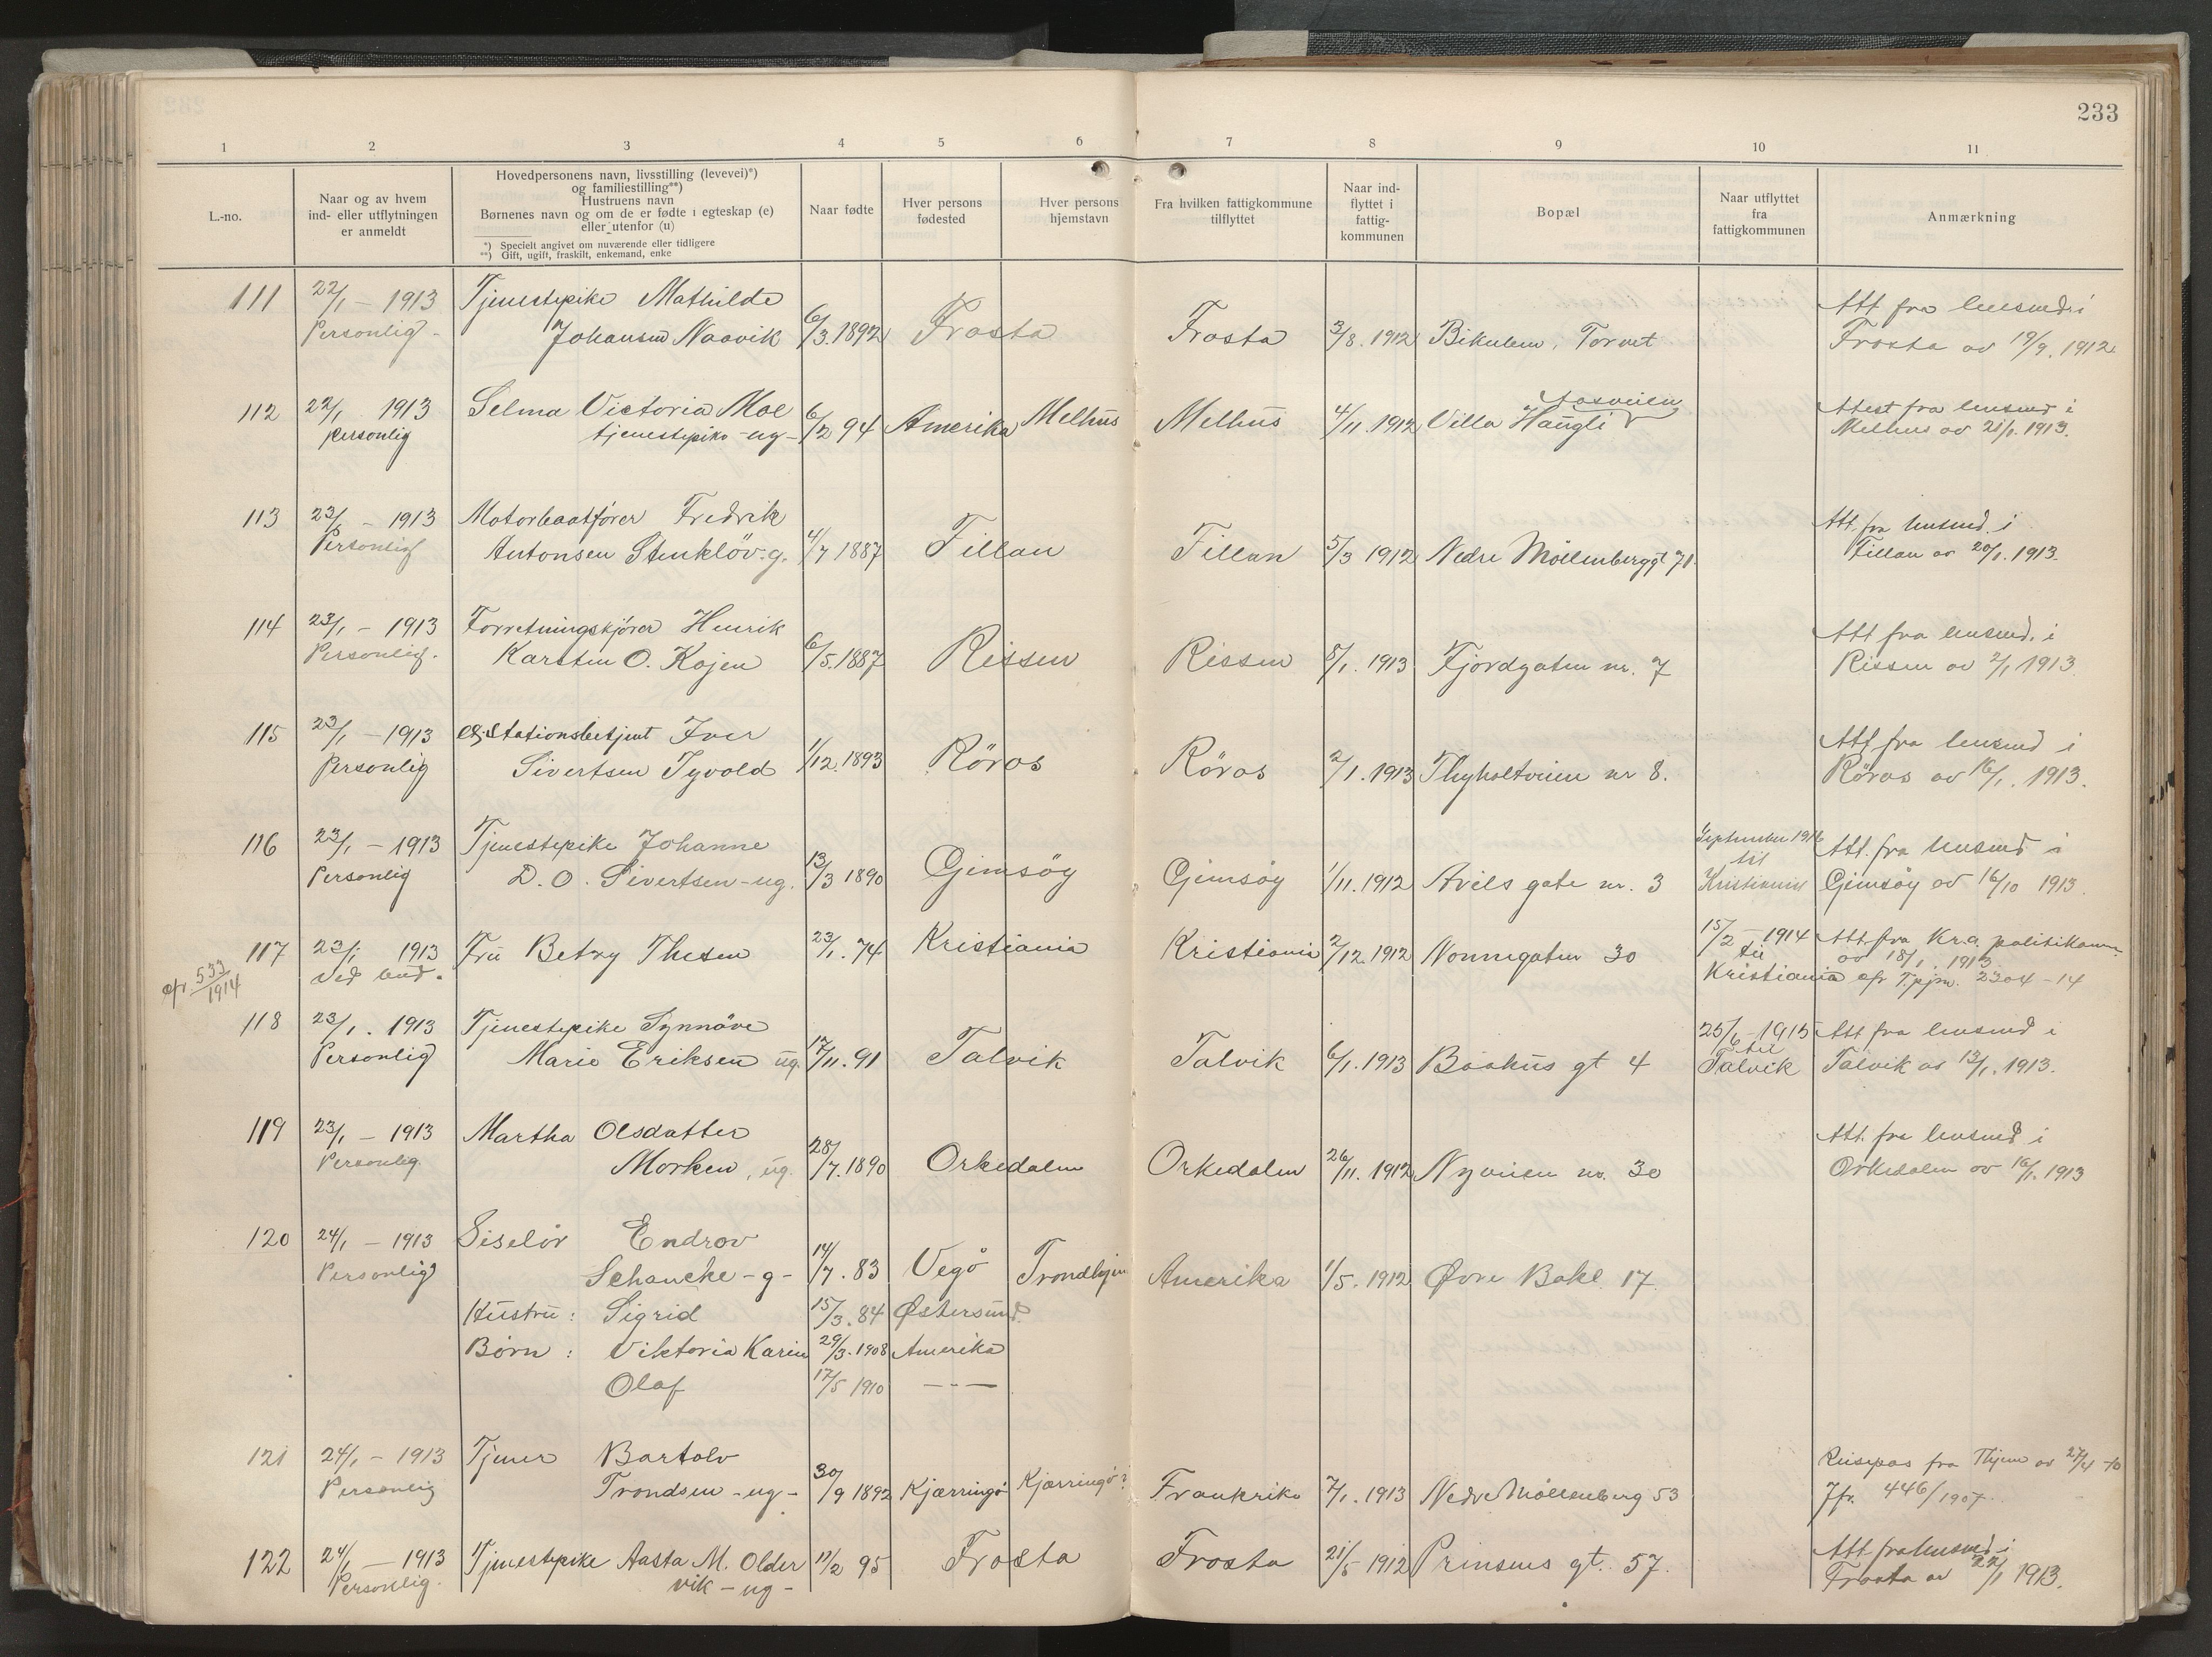 233
1 2 3 4 5 6 7 8 9 10 11
L.-no.
Naar og av hvem
ind- eller utflytningen
er anmeldt
Hovedpersonens navn, livsstilling (levevei)*)
og familiestilling**)
Hustruens navn
Børnenes navn og om de er fødte i egteskap (e)
eller utenfor (u)
*) Specielt angivet om nuværende eller tidligere
**) Gift, ugift, fraskilt, enkemand, enke
Naar fødte
Hver persons
fødested
Hver persons
hjemstavn
Fra hvilken fattigkommune
tilflyttet
Naar ind-
flyttet i
fattig-
kommunen
Bopæl
Naar utflyttet
fra
fattigkommunen
Anmærkning
111 22/1 - 1913 Tjenestepike Mathilde Att fra lensmd. i
Personlig - Johansen Naavik 6/3.1892 Frosta Frosta 3/8. 1912 Bikuben, Torvet Frosta av 19/9. 1912
Aasveien
112 22/1 1913 Selma Victoria Moe 6/2 94 Amerika Melhus Melhus 4/11. 1912 Villa Haugli Attest fra lensmd i
personlig tjenestepike - ug - Melhus av 21/1. 1913.
113 23/1 - 1913 Motorbaatfører Fredrik Att. fra lensmd. i
Personlig Antonsen Stenkløv. g. 4/7 1887 Fillan Fillan 5/3 1912 Nedre Möllenberggt 71. Fillan av 20/1. 1913.
114 23/1 - 1913 Forretningskjører Henrik Att fra lensmd. i
Personlig. Karsten O. Kojen 6/5.1887 Rissen Rissen 8/1. 1913 Fjordgaten nr. 7 Rissen av 2/1 1913
115 23/1 - 1913 Stationsbetjent Iver Att fra lensmd i
Personlig Sivertsen Tyvold 1/12.1893 Röros Röros 2/1. 1913 Thyholtveien nr 8. Röros av 16/1. 1913.
116 23/1 - 1913 Tjenestepike Johanne September 1916 Att. fra lensmd i
til
Personlig D. O. Sivertsen - ug. 13/3 1890 Gimsöy Gimsöy 1/11. 1912 Arilds gate nr. 3 Kristiania Gimsöy av 16/10 1913.
117 23/1 1913 Fru Betzy Thesen 23/1. 74 Kristiania Kristiania 2/12.1912 Nonnegaten 30 15/2 - 1914 Att. fra Kr.a. politikamm.
cfr 533/1914 Ved bud. til av 18/1. 1913
Kristiania cfr 2304 - 14
118 23/1. 1913 Tjenestepike Synnöve 25/6 - 1915 Att fra lensmd i
til
Personlig Marie Eriksen ug. 17/11. 91 Talvik Talvik 6/1. 1913 Baahus gt 4 Talvik Talvik av 13/1. 1913.
119 23/1 - 1913 Martha Olsdatter Att. fra lensmd i
Personlig. Morken, ug. 28/7.1890 Orkedalen Orkedalen 26/11. 1912 Nyveien nr. 30 Orkedalen av 16/1. 1913
120 24/1 - 1913 Endrov
Personlig Schancke - g - 14/7. 83 Vegö Trondhjem Amerika 1/5. 1912 Øvre Bakl. 17.
Hustru: Sigrid 15/3. 84 Østersund.
Børn: Viktoria Karin 29/3.1908 Amerika
Olaf 17/5 1910 - - -
121 24/1 - 1913 Tjener Bartolv Reisepas fra Thjem av 27/4 -10
Personlig Trondsen - ug - 30/9 1892 Kjærringö Kjærringö? Frankrike 7/1. 1913 Nedre Möllenberg 53 Jfr. 446/1907.
122 24/1 - 1913 Tjenestepike Aasta M. Older 17/2 95 Frosta Frosta 21/5 1912 Prinsens gt. 57. Att fra lensmd. i
Personlig. vik - ug - Frosta av 22/1 1913.